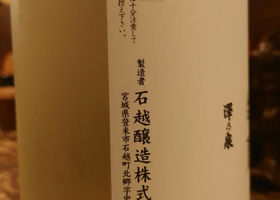 十分注意して
控え下さい。
製造者
石越醸造株式
宮城県登米市石越町北郷字中
澤乃泉